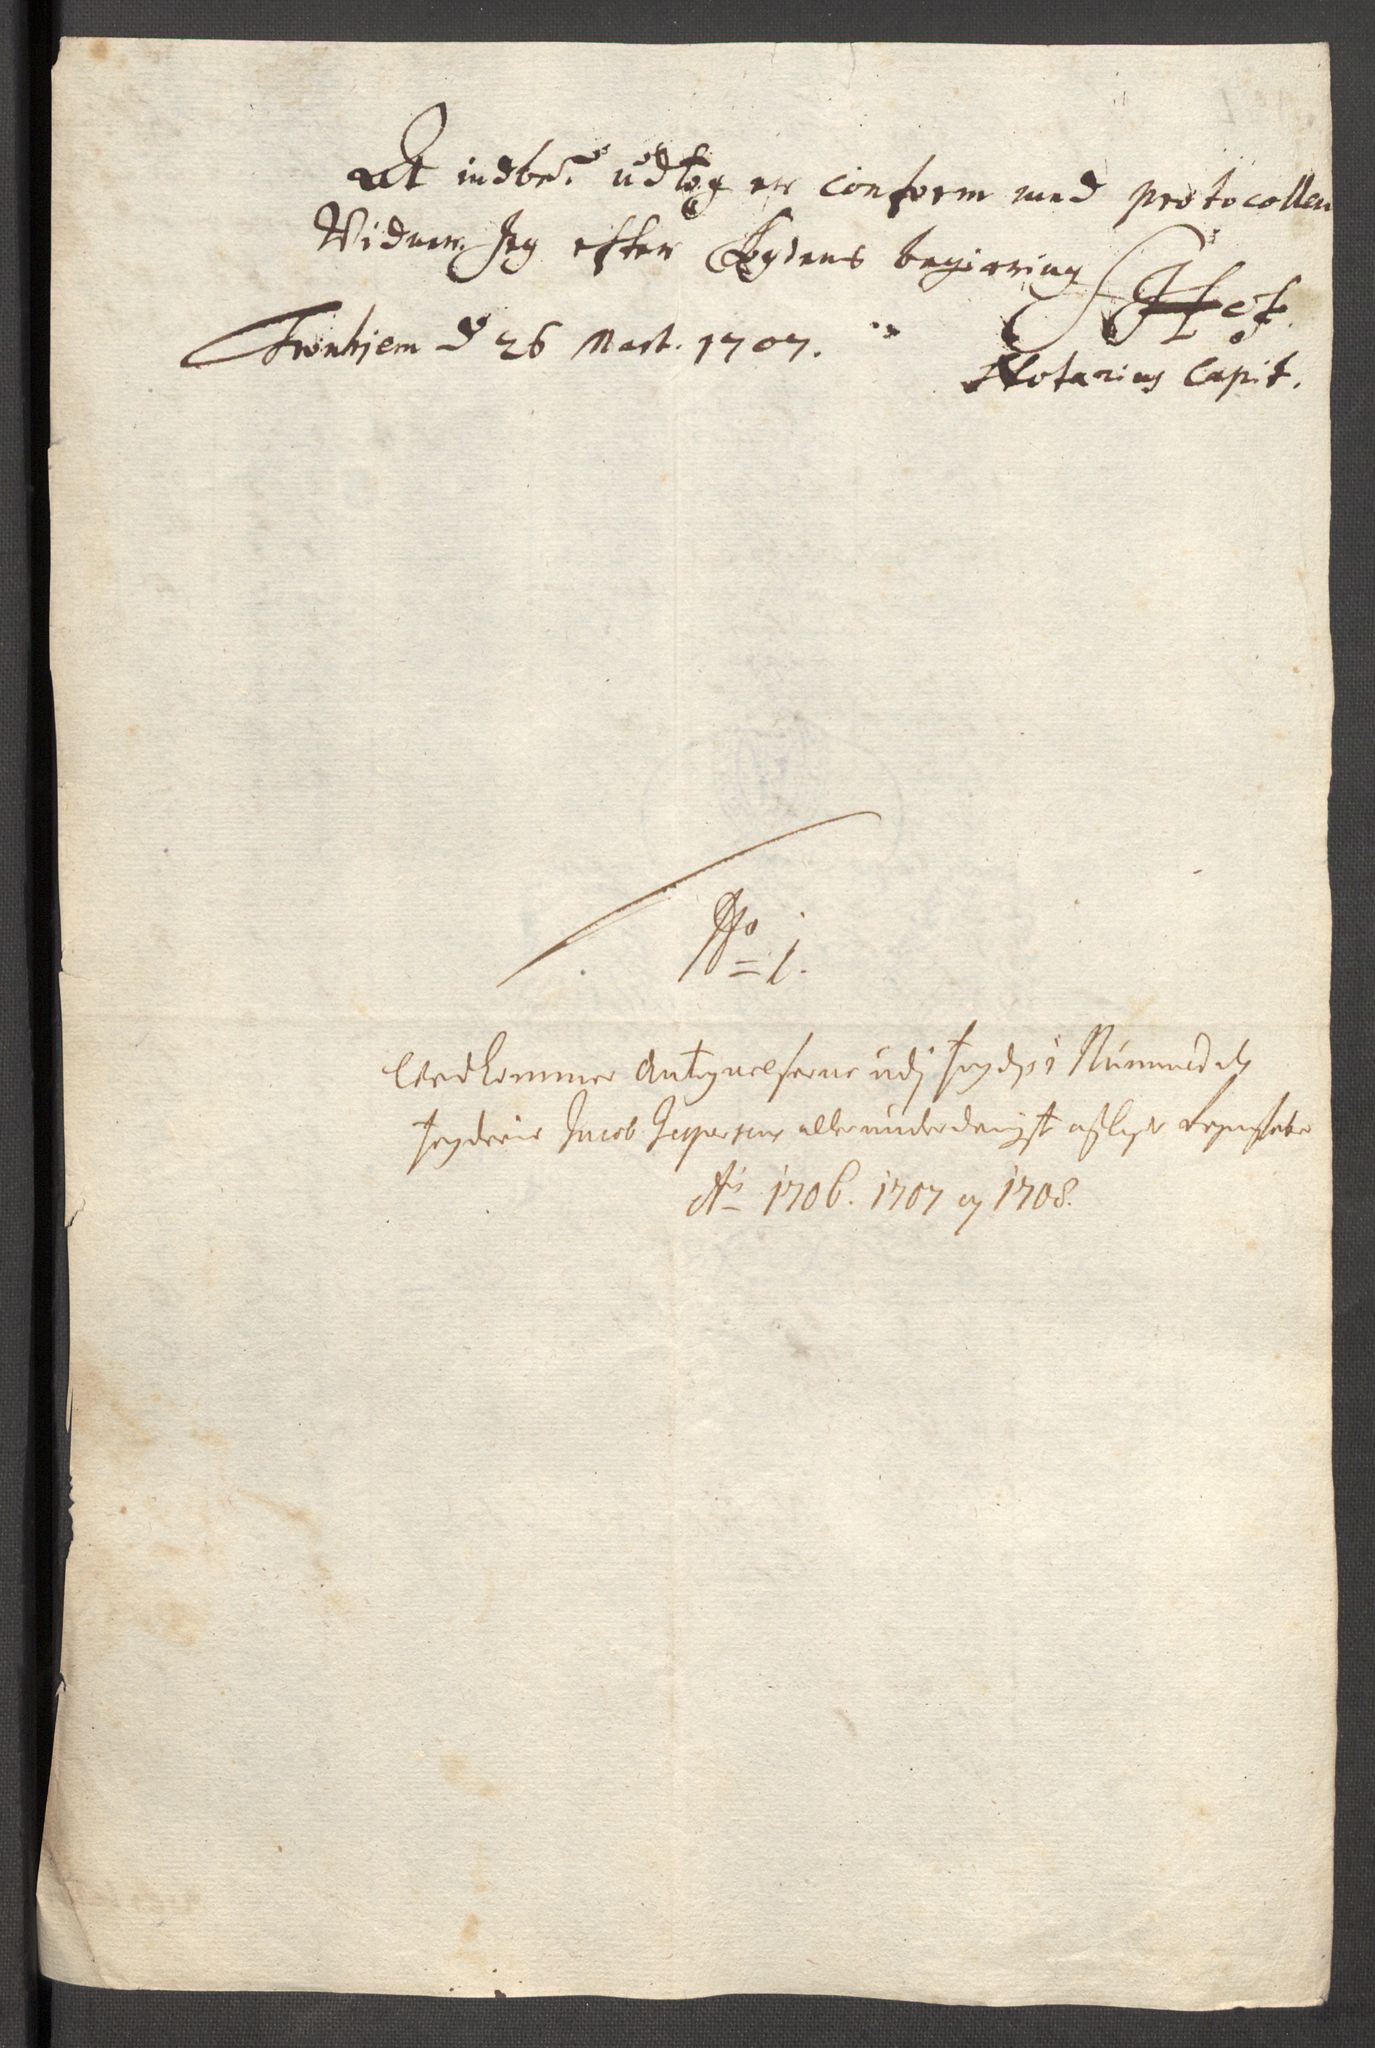 At indbem.te udtog er conform med protocollen
Vidner Jeg efter Fogdens begiering
Tronhjem d 26 Mart. 1707.
Notarius Capit.
No 1.
Vedkommer Antegnelserne udj fogden i Nummedals
fogderie Jacob Jespersens allerunderdanigst aflagde Regnskaber
Ao 1706. 1707 og 1708.